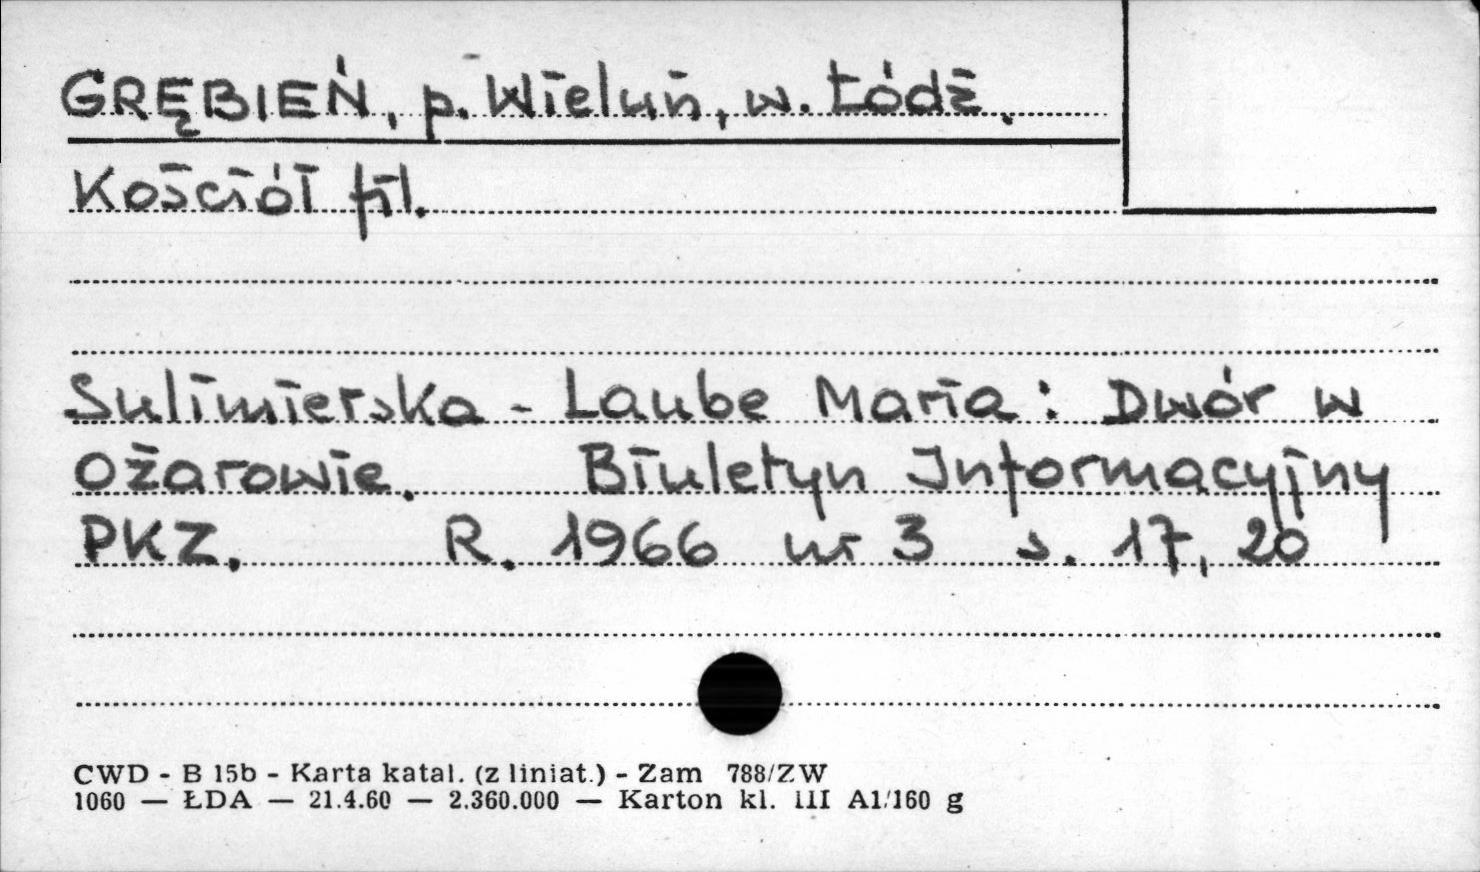 GRĘBIEŃ, p. Wieluń, w. Łódź.
Kościół fil.
Sulimierska - Laube Maria: Dwór w
Ożarowie. Biuletyn Informacyjny
PKZ. R. 1966 nr 3 s. 17, 20
CWD - B 15b - Karta katal. (z liniat.) - Zam 788/ZW
1060 — ŁDA — 21.4.60 — 2.360.000 — Karton kl. III A1/160 g